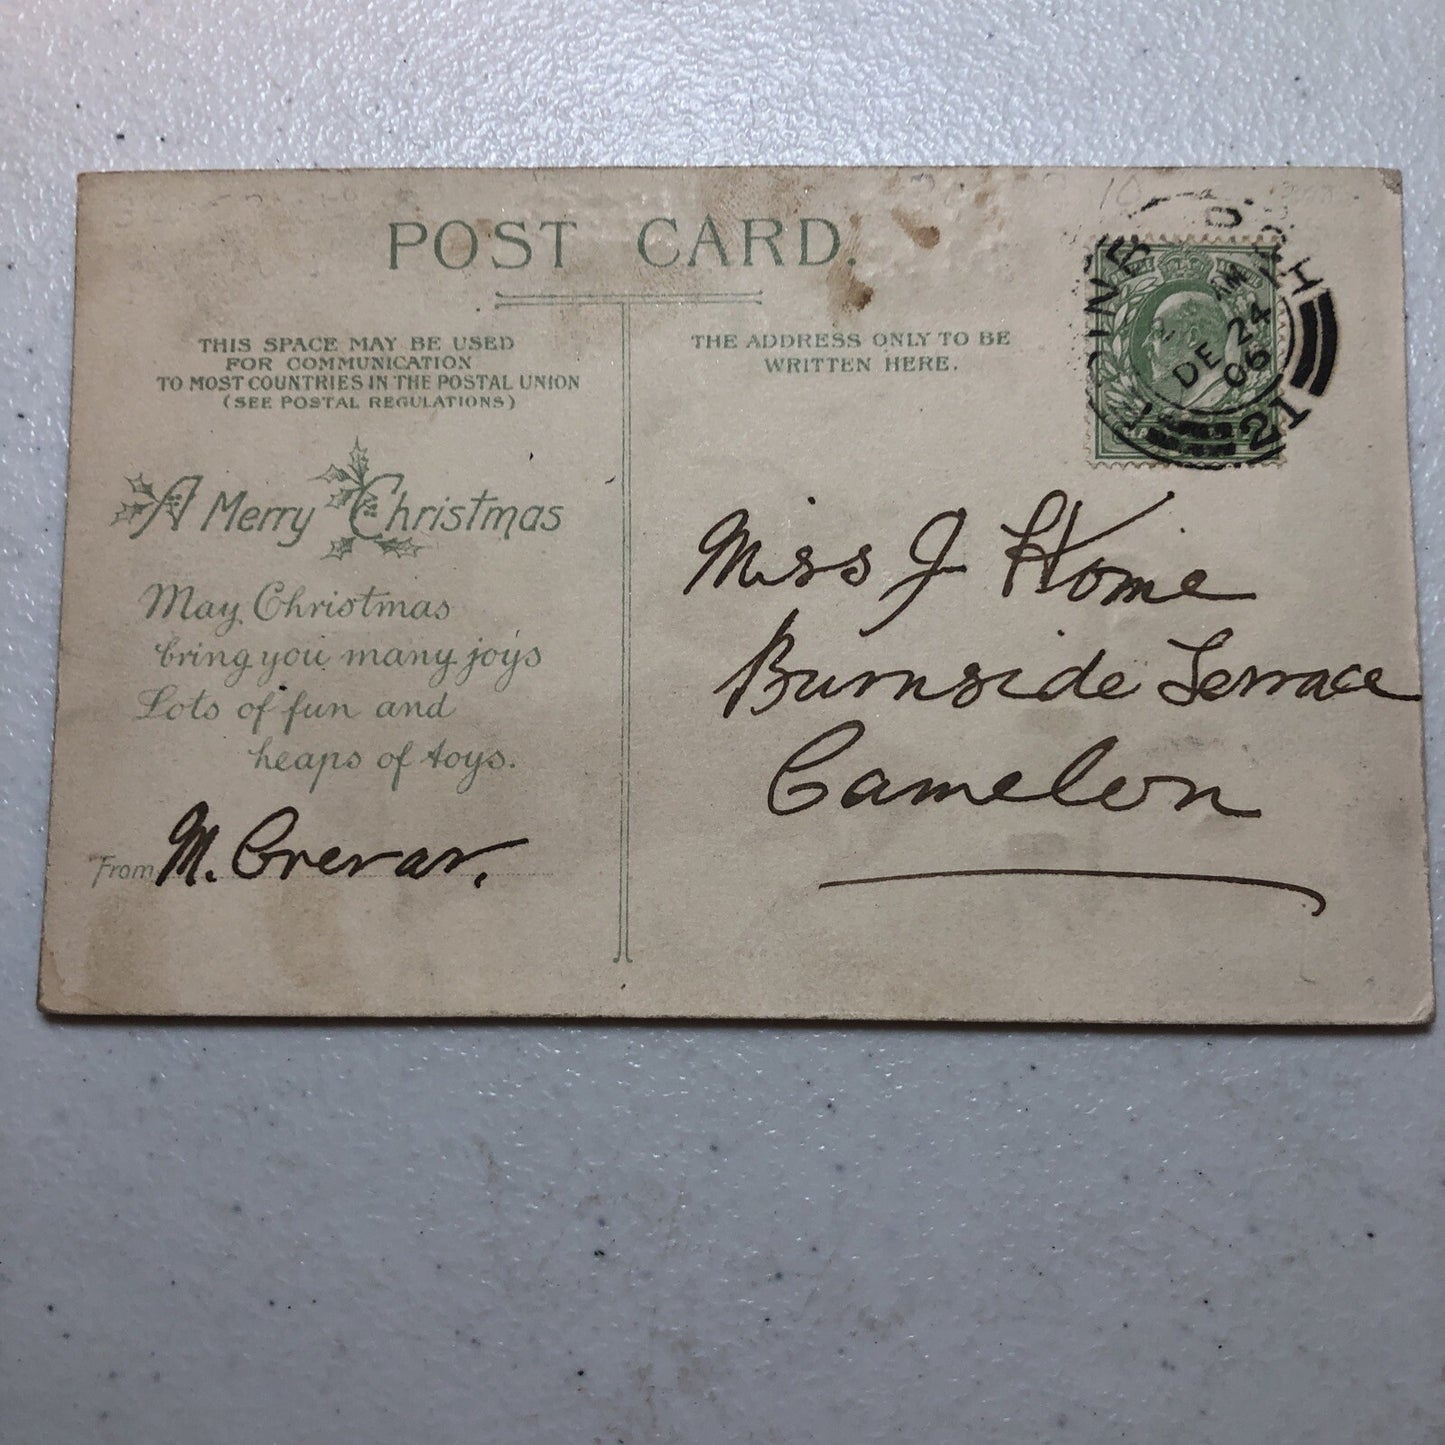 POST CARD.
THIS SPACE MAY BE USED
FOR COMMUNICATION
TO MOST COUNTRIES IN THE POSTAL UNION
(SEE POSTAL REGULATIONS)
A Merry Christmas
May Christmas
bring you many joys
Lots of fun and
heaps of toys.
From M. Crevar.
THE ADDRESS ONLY TO BE
WRITTEN HERE.
DE 24
06
21
Miss J Home
Burnside Terrace
Camelon